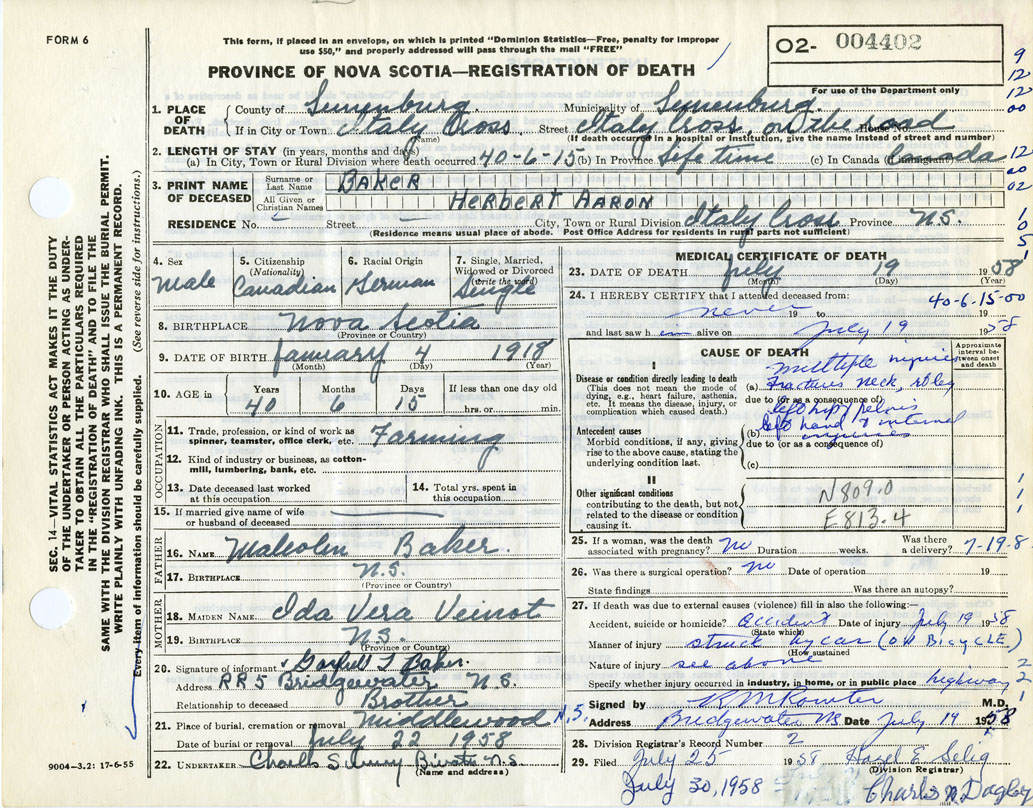 FORM 6
This form, if placed in an envelope, on which is printed "Dominion Statistics—Free, penalty for improper
use $50," and properly addressed will pass through the mail "FREE"
O2- 004402
For use of the Department only
PROVINCE OF NOVA SCOTIA—REGISTRATION OF DEATH
1. PLACE OF DEATH
County of Lunenburg Municipality of Lunenburg
If in City or Town Italy Cross Street Italy Cross, on the road House No.
(Name) (If death occurred in a hospital or institution, give the name instead of street and number)
2. LENGTH OF STAY (in years, months and days)
(a) In City, Town or Rural Division where death occurred 40-6-15 (b) In Province Life time (c) In Canada (if immigrant) Canada
3. PRINT NAME OF DECEASED
Surname or Last Name BAKER
All Given or Christian Names HERBERT AARON
RESIDENCE No. Street City, Town or Rural Division Italy Cross Province N.S.
(Residence means usual place of abode. Post Office Address for residents in rural parts not sufficient)
SEC. 14—VITAL STATISTICS ACT MAKES IT THE DUTY
OF THE UNDERTAKER OR PERSON ACTING AS UNDER-
TAKER TO OBTAIN ALL THE PARTICULARS REQUIRED
IN THE "REGISTRATION OF DEATH" AND TO FILE THE
SAME WITH THE DIVISION REGISTRAR WHO SHALL ISSUE THE BURIAL PERMIT.
WRITE PLAINLY WITH UNFADING INK. THIS IS A PERMANENT RECORD.
Every item of information should be carefully supplied. (See reverse side for instructions.)
4. Sex Male
5. Citizenship (Nationality) Canadian
6. Racial Origin German
7. Single, Married, Widowed or Divorced (write the word) Single
8. BIRTHPLACE Nova Scotia
(Province or Country)
9. DATE OF BIRTH January 4 1918
(Month) (Day) (Year)
10. AGE in Years 40 Months 6 Days 15 If less than one day old hrs. or min.
OCCUPATION
11. Trade, profession, or kind of work as spinner, teamster, office clerk, etc. Farming
12. Kind of industry or business, as cotton-mill, lumbering, bank, etc.
13. Date deceased last worked at this occupation
14. Total yrs. spent in this occupation
15. If married give name of wife or husband of deceased
FATHER
16. NAME Malcolm Baker.
17. BIRTHPLACE N.S.
(Province or Country)
MOTHER
18. MAIDEN NAME Ida Vera Veinot
19. BIRTHPLACE N.S.
(Province or Country)
20. Signature of informant L. Baker.
Address RR5 Bridgewater N.S.
Relationship to deceased Brother
21. Place of burial, cremation or removal Middlewood N.S.
Date of burial or removal July 22 1958
22. UNDERTAKER Charles N.S.
(Name and address)
9004—3.2: 17-6-55
MEDICAL CERTIFICATE OF DEATH
23. DATE OF DEATH July 19 1958
(Month) (Day) (Year)
24. I HEREBY CERTIFY that I attended deceased from: 40-6-15-00
never 19 to 19
and last saw h im alive on July 19 1958
CAUSE OF DEATH
Approximate interval between onset and death
I
Disease or condition directly leading to death
(This does not mean the mode of dying, e.g., heart failure, asthenia, etc. It means the disease, injury, or complication which caused death.)
multiple injuries
(a) Fractures neck,
due to (or as a consequence of)
left hip, pelvis
Antecedent causes
Morbid conditions, if any, giving rise to the above cause, stating the underlying condition last.
left hand & internal
(b) injuries
due to (or as a consequence of)
(c)
II
Other significant conditions
contributing to the death, but not related to the disease or condition causing it.
N809.0
E813.4
25. If a woman, was the death associated with pregnancy? no Duration weeks. Was there a delivery? 7-19-8
26. Was there a surgical operation? no Date of operation 19
State findings Was there an autopsy?
27. If death was due to external causes (violence) fill in also the following:—
Accident, suicide or homicide? accident Date of injury July 19 1958
(State which)
Manner of injury struck by car (ON BICYCLE)
(How sustained
Nature of injury see above
Specify whether injury occurred in industry, in home, or in public place highway
Signed by M.D.
Address Bridgewater NS Date July 19 1958
28. Division Registrar's Record Number 2
29. Filed July 25 1958 Hazel E Selig
(Division Registrar)
July 30, 1958 Charles
9
12
12
00
12
00
02
1
0
5
1
1
1
1
2
2
1